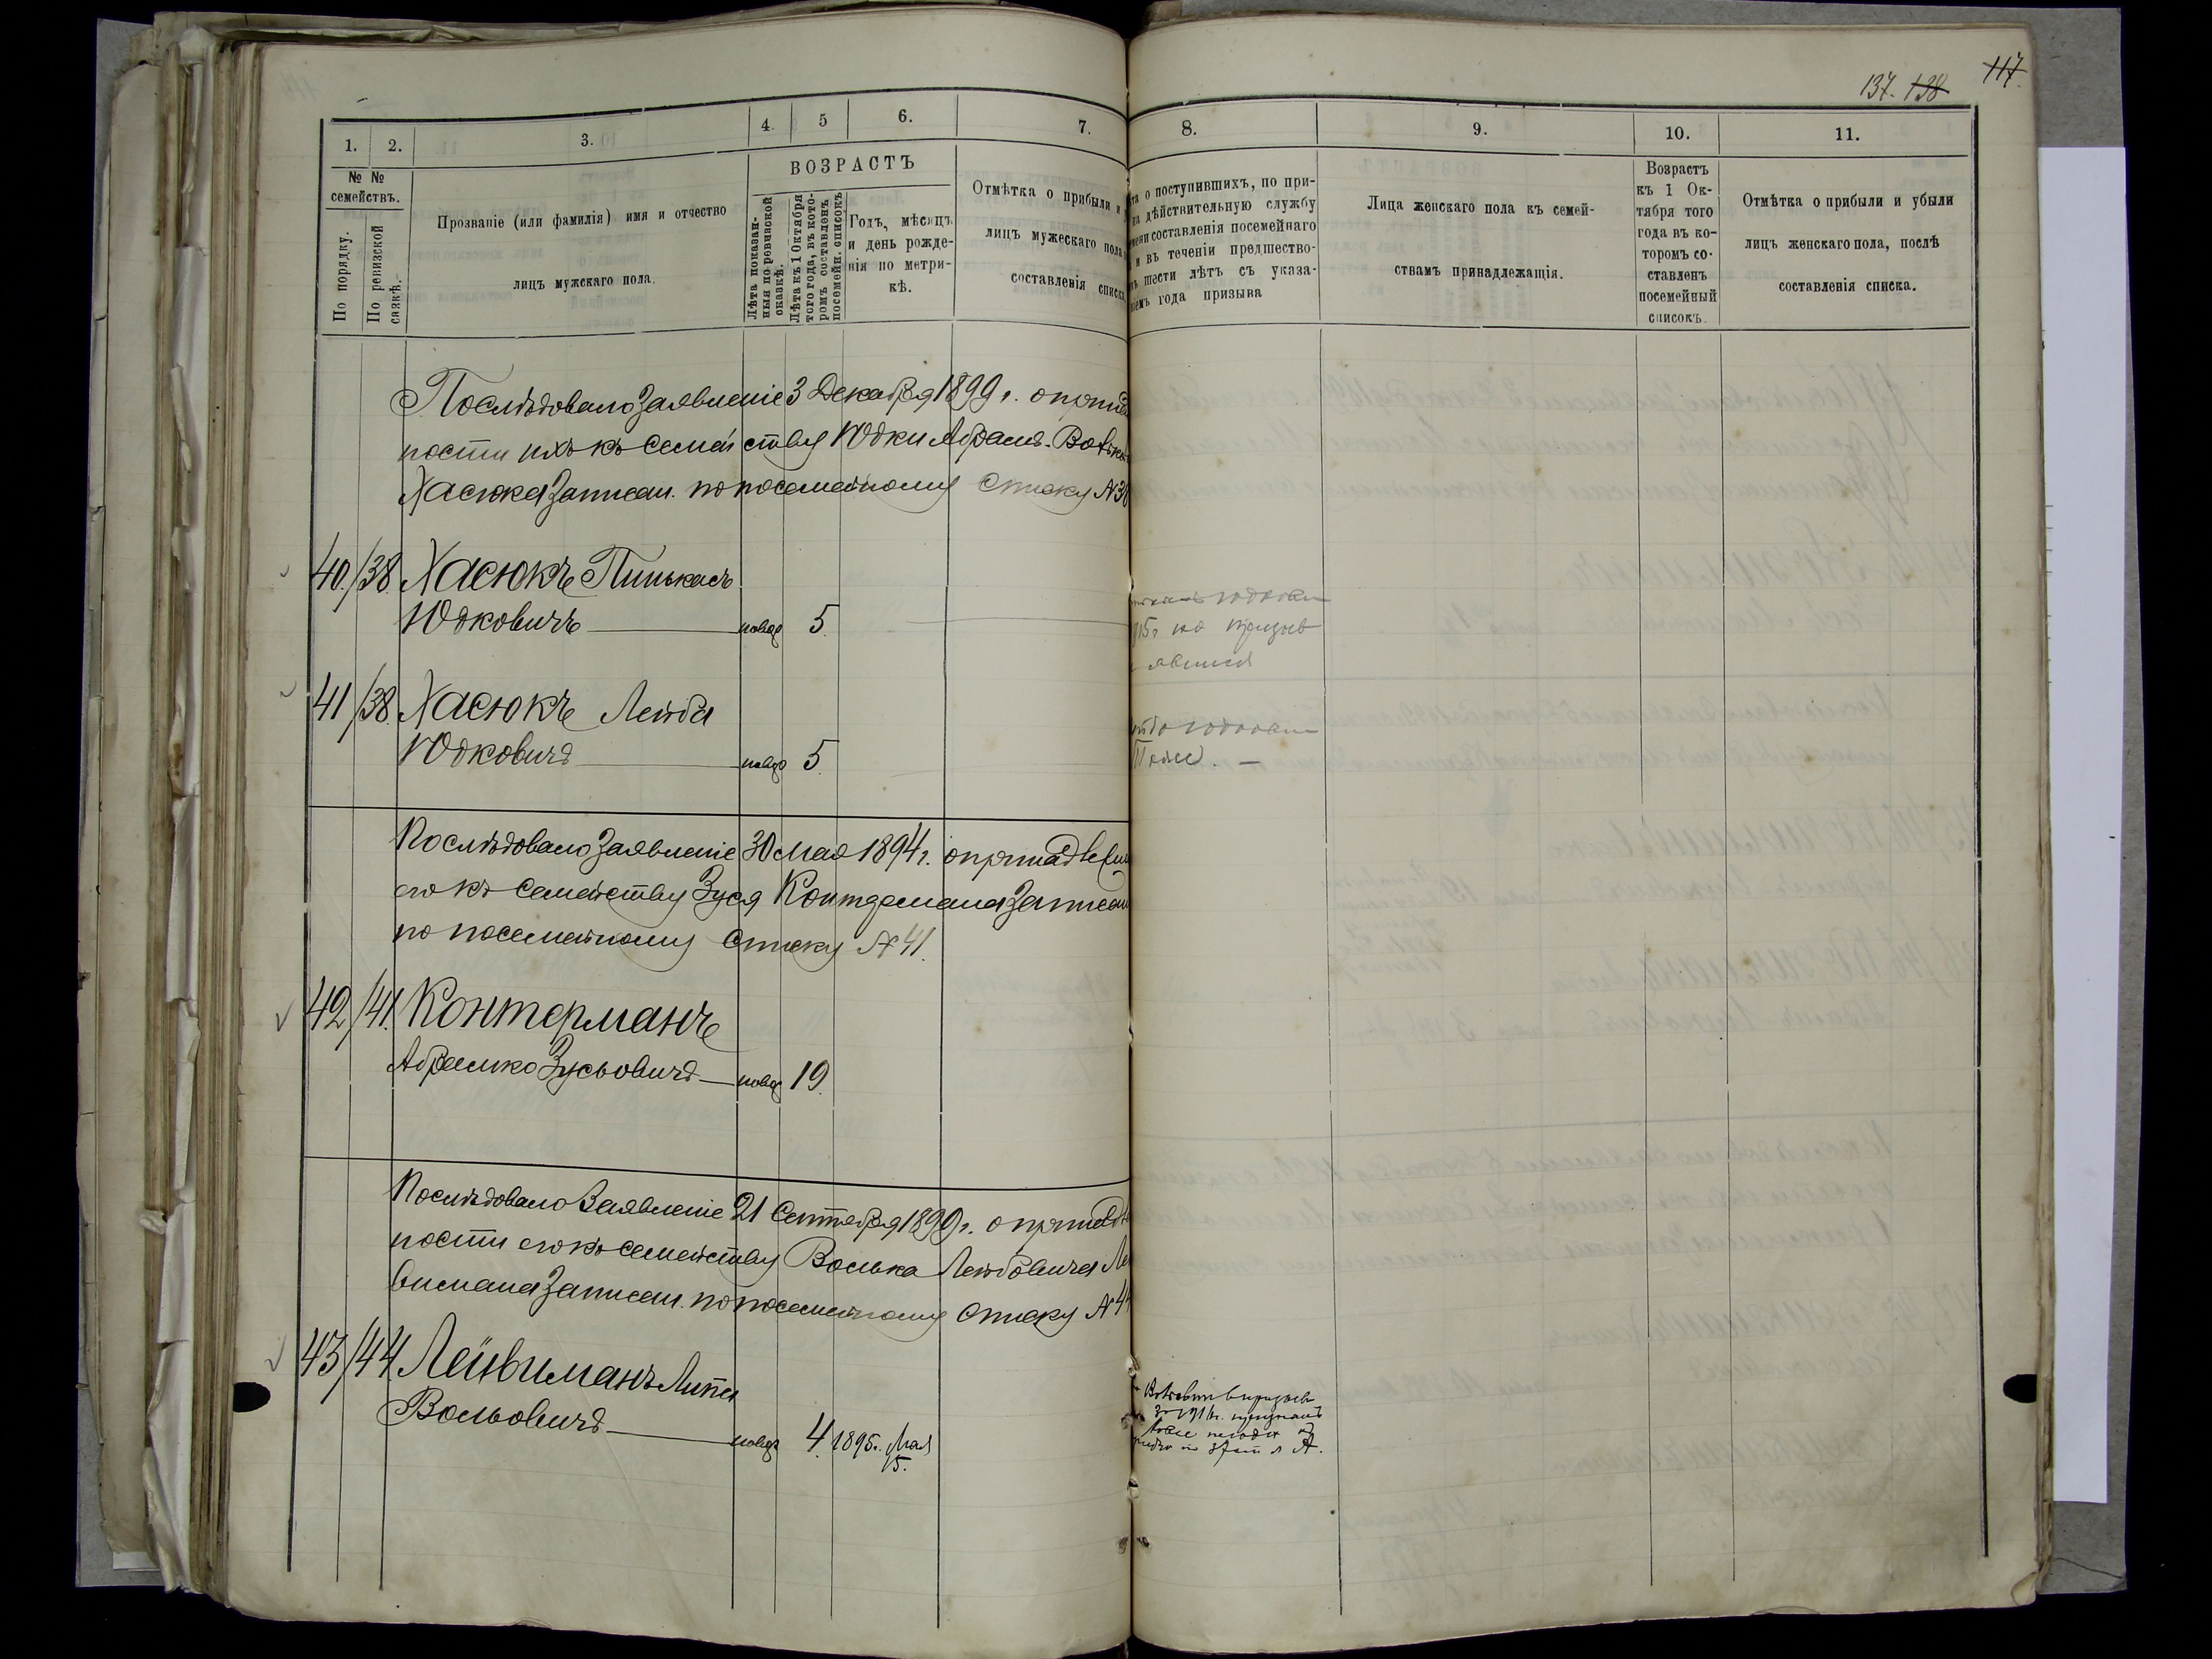 137. 138 117
1. 2. 3. 4. 5 6. 7. 8. 9. 10. 11.
№ № семействъ.
По порядку.
По ревизской сказкѣ.
Прозваніе (или фамилія) имя и отчество
лицъ мужскаго пола.
ВОЗРАСТЪ
Лѣта показан-
ныя по ревизской
сказкѣ.
Лѣта къ 1 Октября
того года, въ кото-
ромъ составленъ
посемейн. списокъ
Годъ, мѣсяцъ
и день рожде-
нія по метри-
кѣ.
Отмѣтка о прибыли и
лицъ мужескаго пола
составленія списка
та о поступившихъ, по при-
на дѣйствительную службу
мени составленія посемейнаго
и въ теченіи предшество-
ъ шести лѣтъ съ указа-
емъ года призыва
Лица женскаго пола къ семей-
ствамъ принадлежащія.
Возрастъ
къ 1 Ок-
тября того
года въ ко-
торомъ со-
ставленъ
посемейный
списокъ.
Отмѣтка о прибыли и убыли
лицъ женскаго пола, послѣ
составленія списка.
Послѣдовало Заявленіе 3 Декабря 1899 г. о прина
ности ихъ къ семей ству Юдки Абрам.
Хасюка Записан. по посемейному списку №38
40./38. Хасюкъ Пинькасъ
Юдковичъ — новор 5.
15г на призыв
явился
41/38. Хасюкъ Лейба
Юдковичъ — новор 5.
Тоже. —
Послѣдовало Заявленіе 30 Мая 1894 г. о принадлеж
его къ семейству Зуся Контермана Записан
по посемейному списку № 41.
42/41. Контерманъ
Абрамко Зусьовичъ — новор 19.
Послѣдовало Заявленіе 21 Сентября 1899 г. о принадл
ности его къ семейству Волька Лейбовича Ле
вимана Записан. по посемейному списку № 44
43/44 Лейвиманъ Липа
Вольовичъ — новор 4. 1895 г. Мая
15.